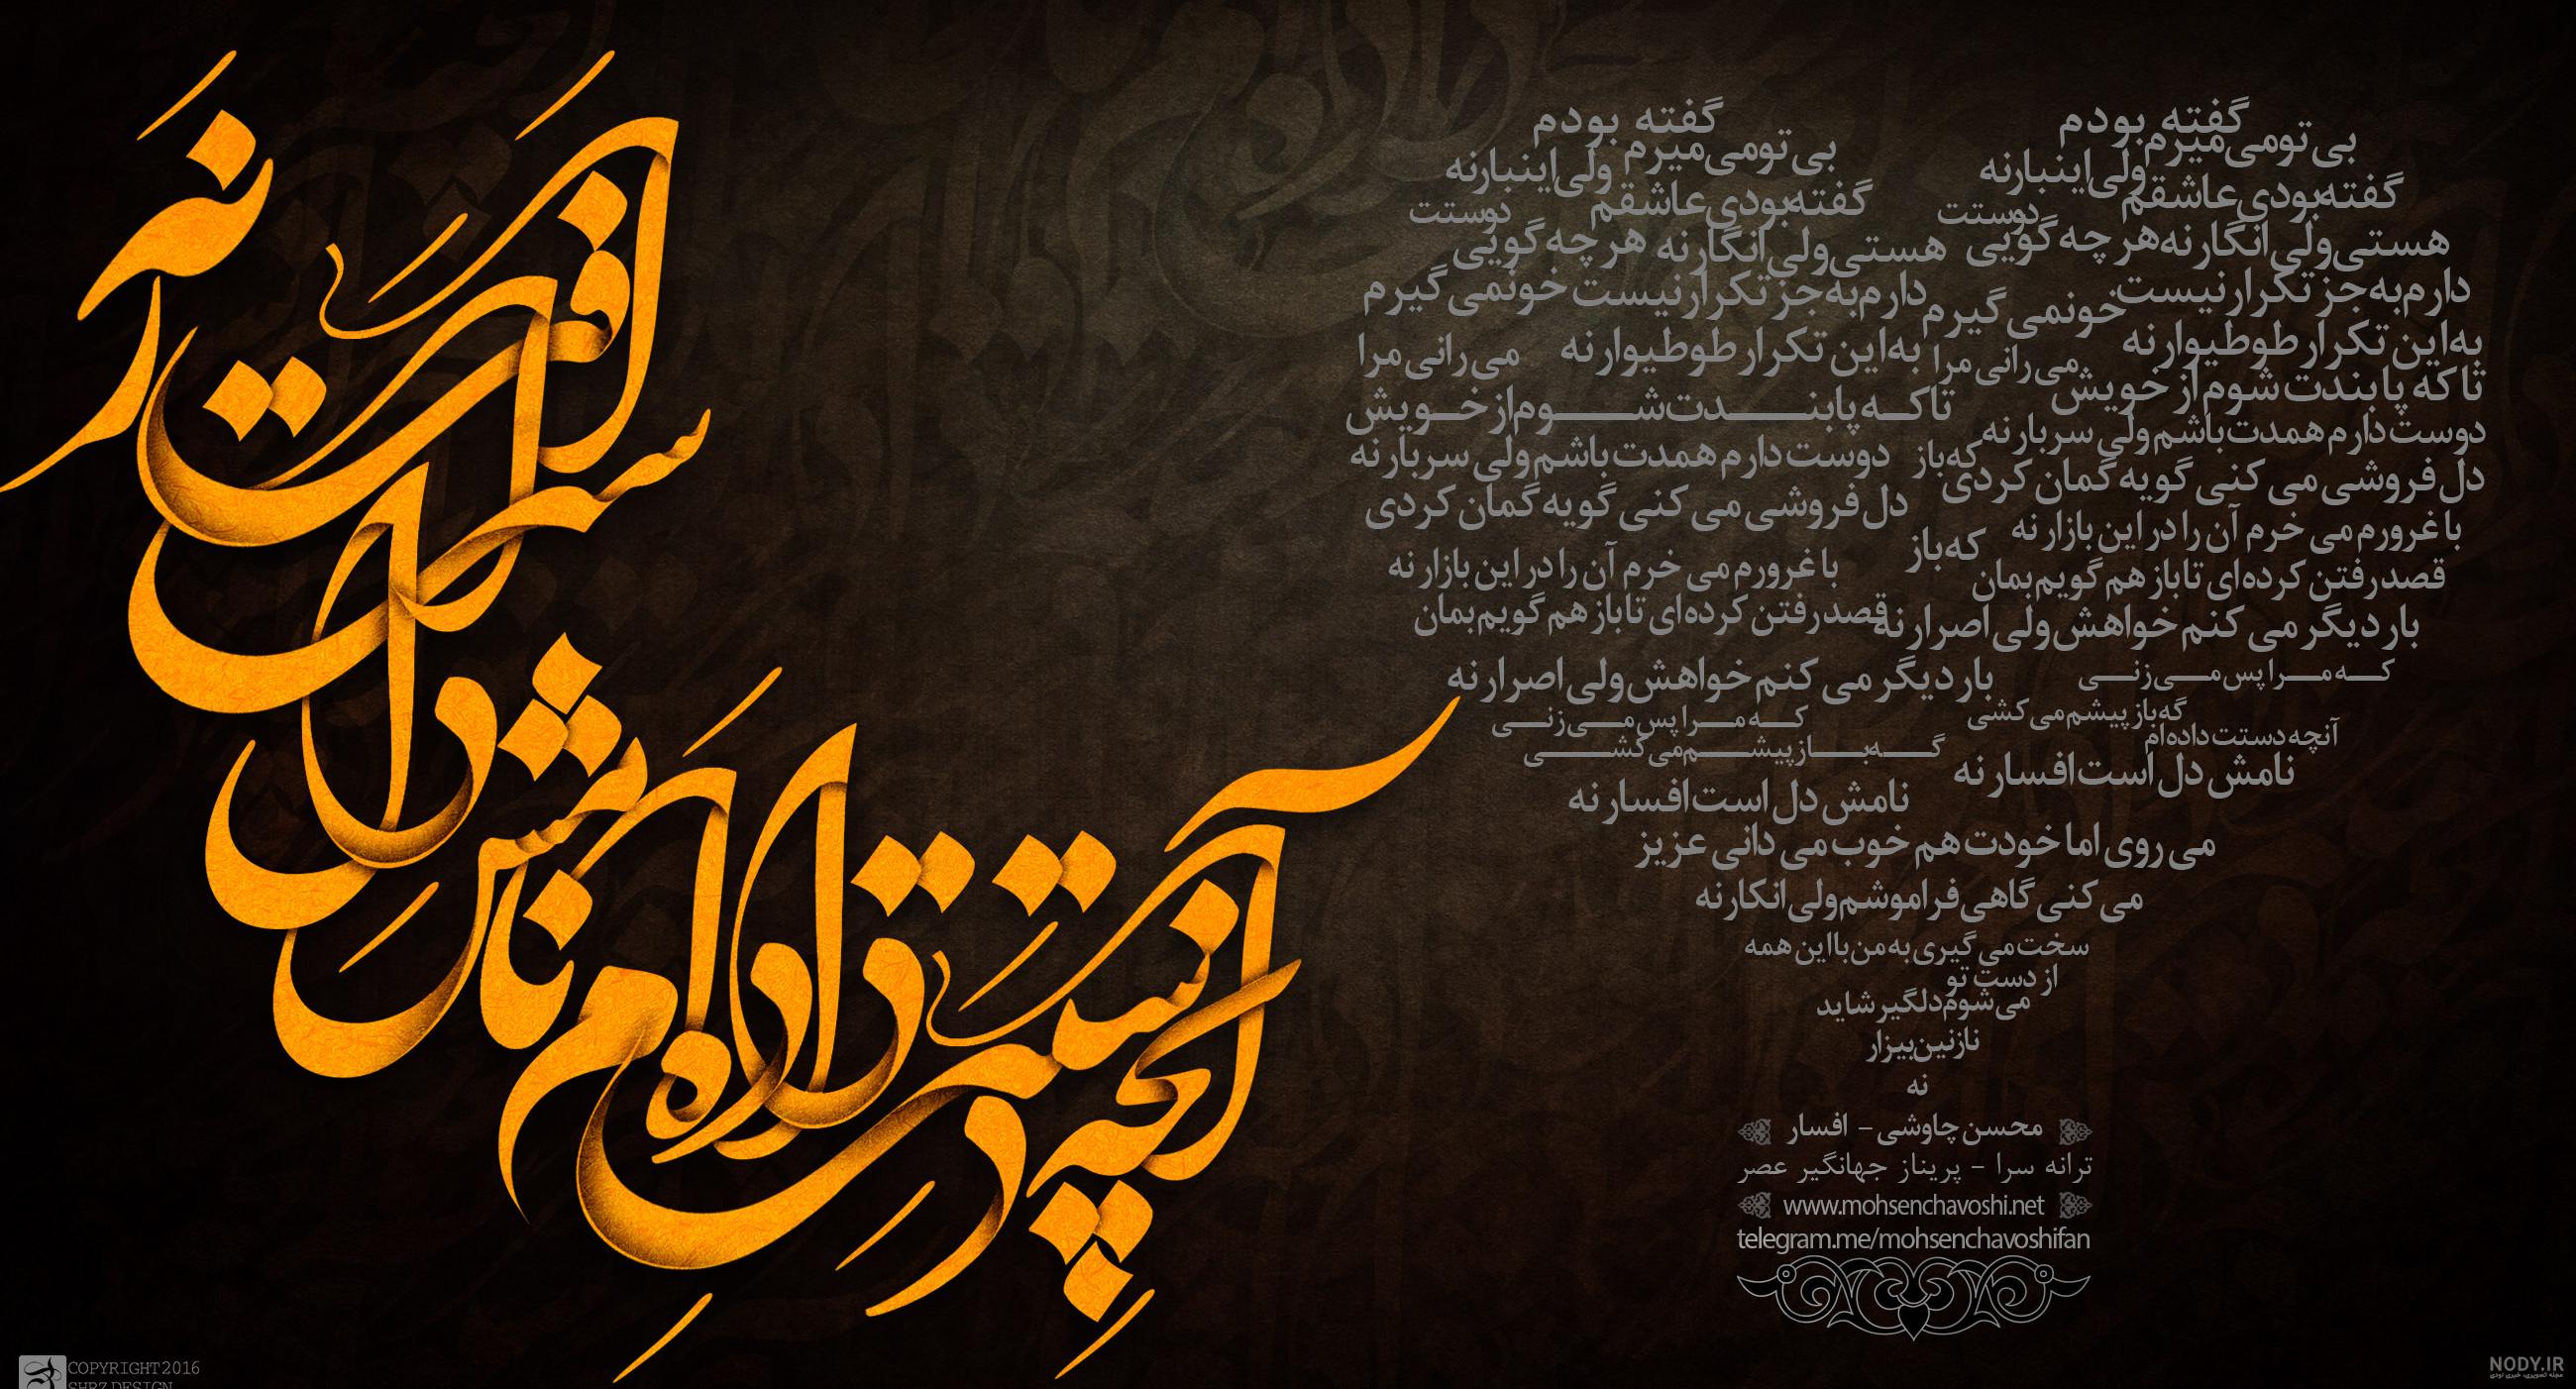 آنچه دستت داده‌ام نامش دل است افسار نه
گفته بودم
بی تو می میرم ولی اینبار نه
گفته بودی عاشقم
دوستت
هستی ولی انگار نه هر چه گویی
دارم به جز تکرار نیست
خو نمی گیرم
به این تکرار طوطیوار نه
می رانی مرا
تا که پابندت شوم از خویش
دوست دارم همدمت باشم ولی سربار نه
که باز
دل فروشی می کنی گویه گمان کردی
با غرورم می خرم آن را در این بازار نه
قصد رفتن کرده ای تا باز هم گویم بمان
بار دیگر می کنم خواهش ولی اصرار نه
که مرا پس می زنی
گه باز پیشم می کشی
آنچه دستت داده ام
نامش دل است افسار نه
گفته بودم
بی تو می میرم ولی اینبار نه
گفته بودی عاشقم
دوستت
هستی ولی انگار نه هر چه گویی
دارم به جز تکرار نیست خو نمی گیرم
به این تکرار طوطیوار نه
می رانی مرا
تا که پابندت شوم از خویش
دوست دارم همدمت باشم ولی سربار نه
دل فروشی می کنی گویه گمان کردی
که باز
با غرورم می خرم آن را در این بازار نه
قصد رفتن کرده ای تا باز هم گویم بمان
بار دیگر می کنم خواهش ولی اصرار نه
که مرا پس می زنی
گه باز پیشم می کشی
نامش دل است افسار نه
می روی اما خودت هم خوب می دانی عزیز
می کنی گاهی فراموشم ولی انکار نه
سخت می گیری به من با این همه
از دست تو
می شوم دلگیر شاید
نازنین بیزار
نه
محسن چاوشی - افسار
ترانه سرا - پریناز جهانگیر عصر
www.mohsenchavoshi.net
telegram.me/mohsenchavoshifan
COPYRIGHT 2016
SHRZ DESIGN
NODY.IR
مجله تصویری، خبری نودی